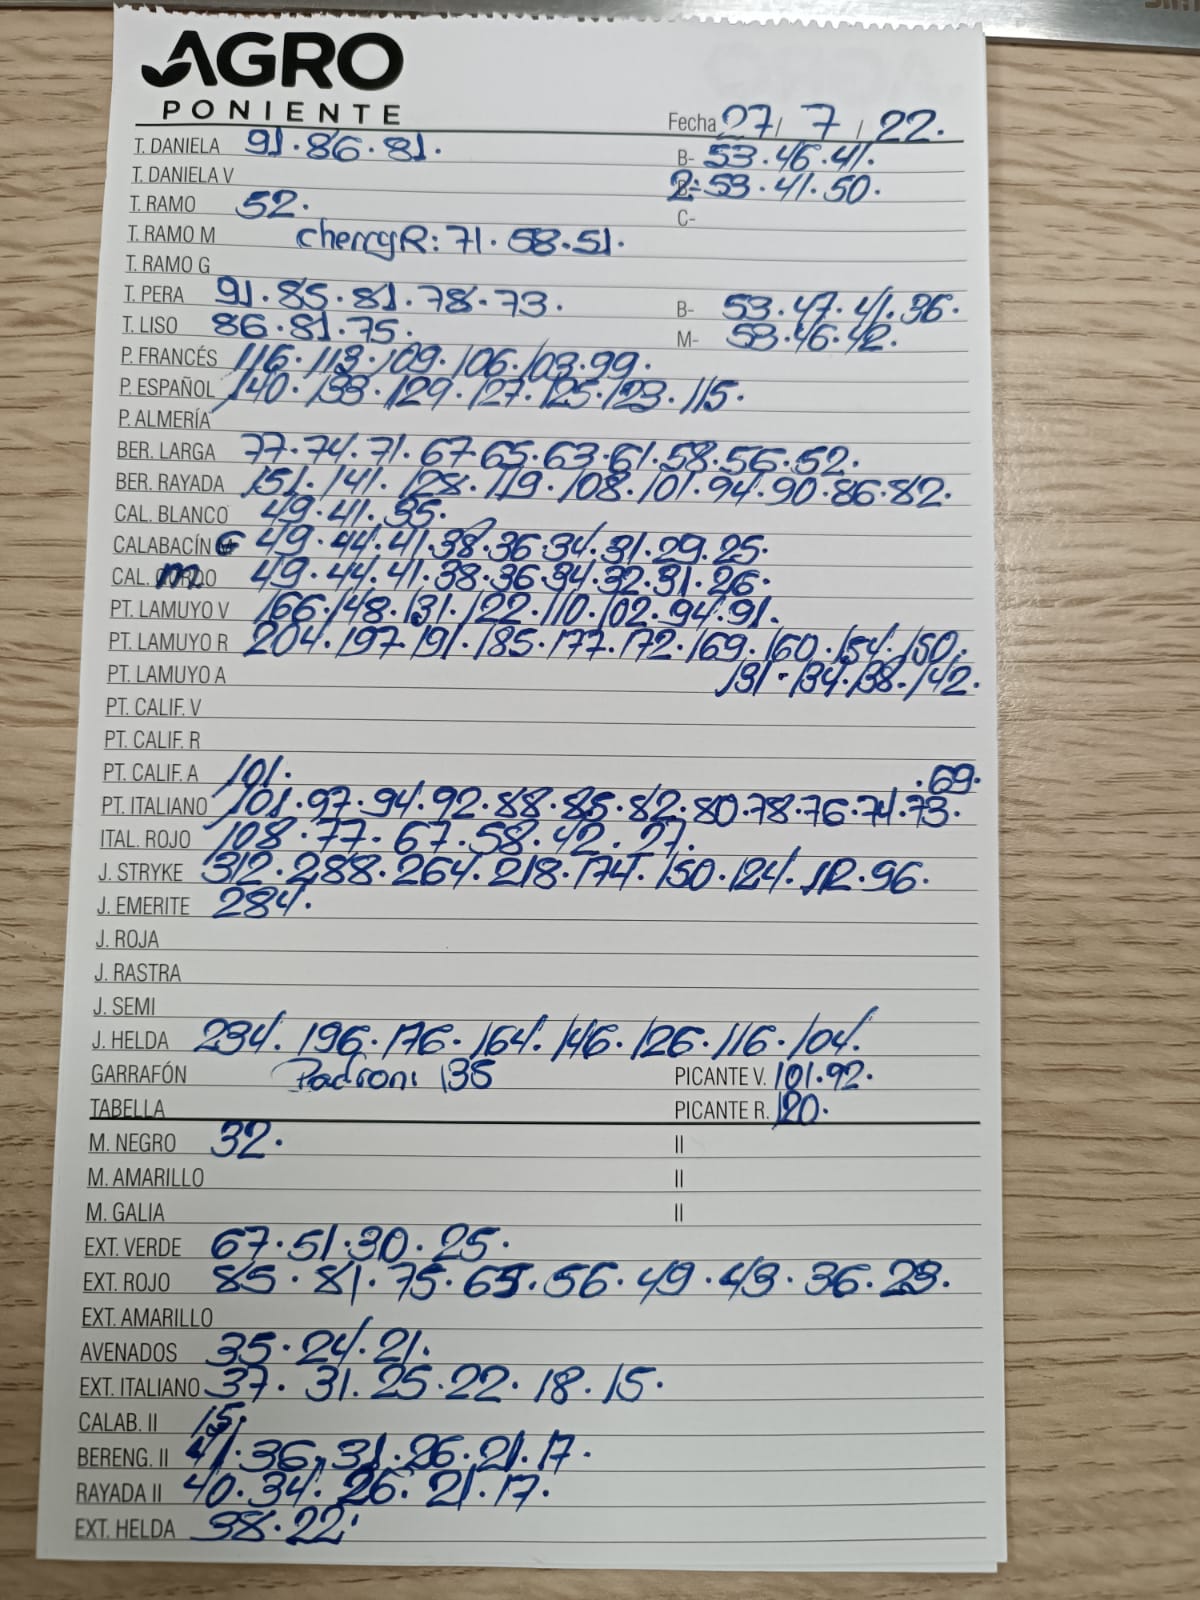 AGRO
PONIENTE
Fecha 27/ 7 / 22.
T. DANIELA 91.86.81. B- 53.46.41.
T. DANIELA V 2:53.41.50.
T. RAMO 52. C-
T. RAMO M cherry R: 71.58.51.
T. RAMO G
T. PERA 91.85.81.78.73. B- 53.47.41.36.
T. LISO 86.81.75. M- 53.46.42.
P. FRANCÉS 116.113.109.106.103.99.
P. ESPAÑOL 140.133.129.127.125.123.115.
P. ALMERÍA
BER. LARGA 77.74.71.67.65.63.61.58.56.52.
BER. RAYADA 151.141.128.119.108.101.94.90.86.82.
CAL. BLANCO 49.41.35.
CALABACÍN G 49.44.41.38.36.34.31.29.25.
CAL. m 49.44.41.38.36.34.32.31.26.
PT. LAMUYO V 166.148.131.122.110.102.94.91.
PT. LAMUYO R 204.197.191.185.177.172.169.160.154.150.
PT. LAMUYO A 131.134.138.142.
PT. CALIF. V
PT. CALIF. R
PT. CALIF. A 101. .69.
PT. ITALIANO 101.97.94.92.88.85.82.80.78.76.74.73.
ITAL. ROJO 108.77.67.58.42.27.
J. STRYKE 312.288.264.218.174.150.124.112.96.
J. EMERITE 284.
J. ROJA
J. RASTRA
J. SEMI
J. HELDA 234.196.176.164.146.126.116.104.
GARRAFÓN Padron: 135 PICANTE V. 101.92.
TABELLA PICANTE R. 120.
M. NEGRO 32. II
M. AMARILLO II
M. GALIA II
EXT. VERDE 67.51.30.25.
EXT. ROJO 85.81.75.65.56.49.43.36.23.
EXT. AMARILLO
AVENADOS 35.24.21.
EXT. ITALIANO 37.31.25.22.18.15.
CALAB. II 15.
BERENG. II 41.36.31.26.21.17.
RAYADA II 40.34.26.21.17.
EXT. HELDA 38.22.